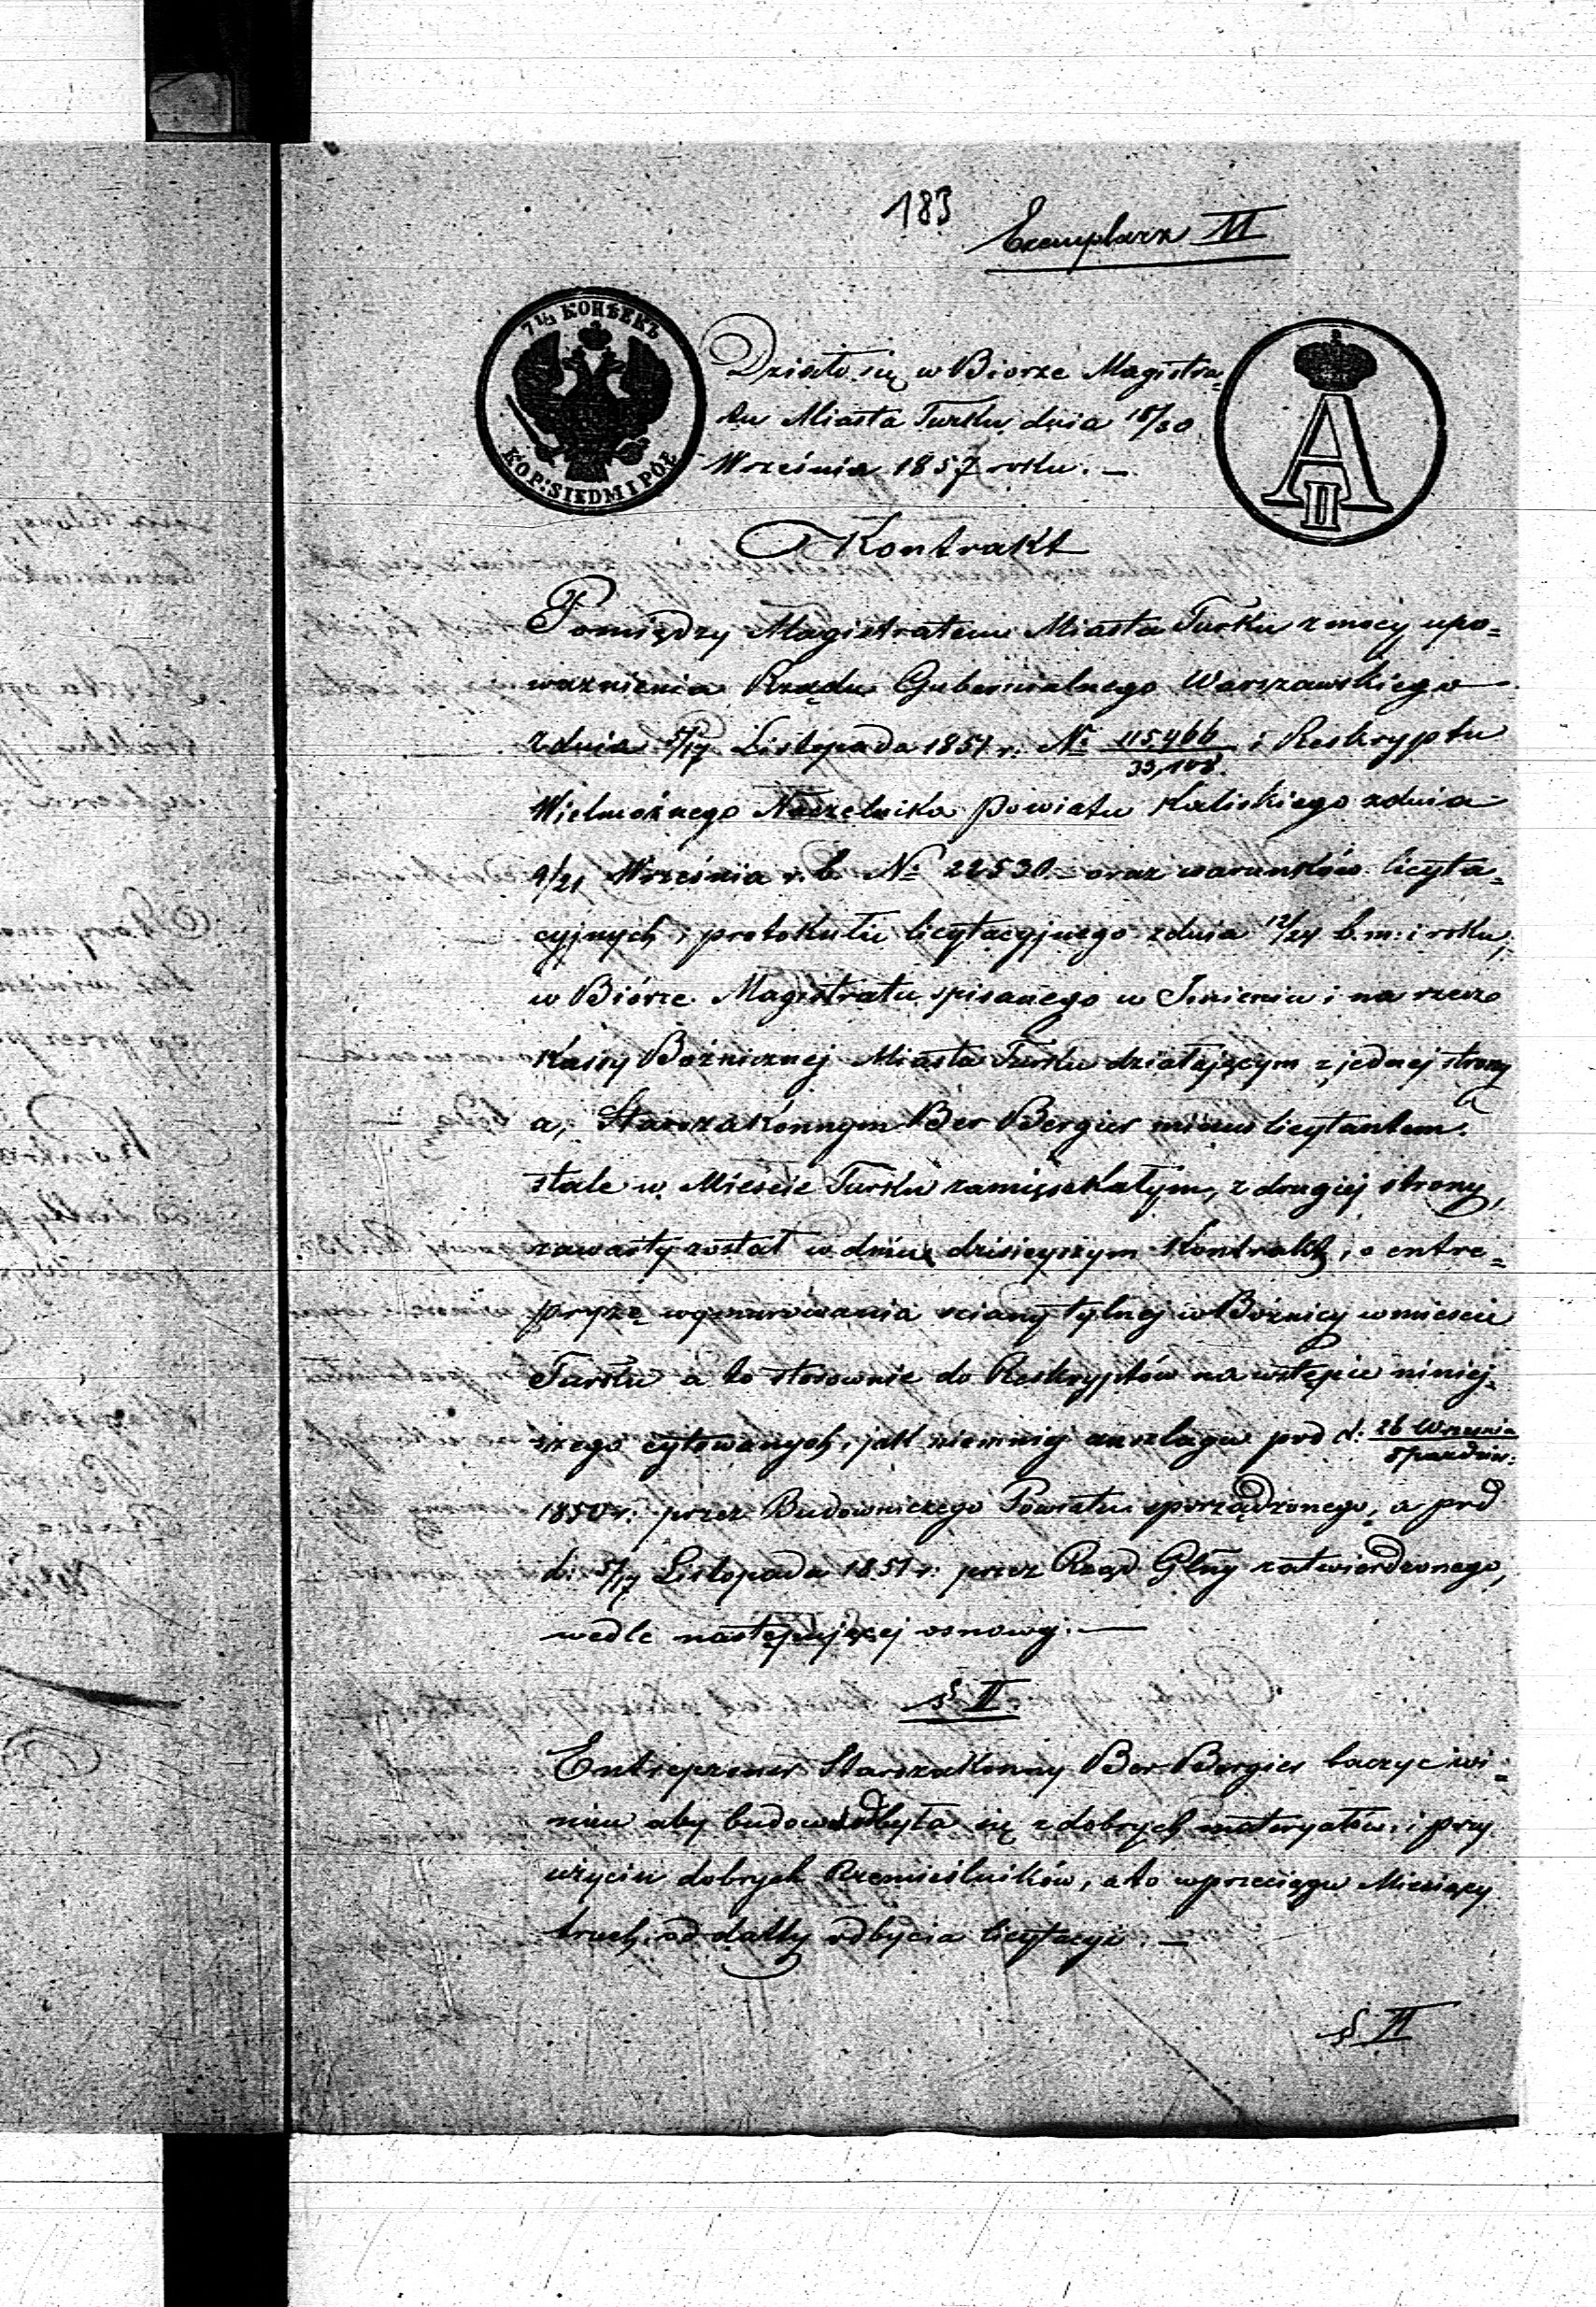 183
Exemplarz II
7 ½ КОПѢЕКЪ
KOP: SIEDM I PÓŁ
A II
Działo się w Biorze Magistra=
tu Miasta Turku dnia 18/30
Września 1857 roku. —
Kontrakt
Pomiędzy Magistratem Miasta Turku z mocy upo=
ważnienia Rządu Gubernialnego Warszawskiego
z dnia 5/17 Listopada 1851 r. No 115,466/33,108. i Reskryptu
Wielmożnego Naczelnika Powiatu Kaliskiego z dnia
9/21 Września r. b. No 22530. — oraz warunków licyta=
cyjnych i protokułu licytacyjnego z dnia 12/24 b. m. i roku,
w Biórze Magistratu spisanego w Imieniu i na rzecz
Kassy Bóżnicznej Miasta Turku działającym z jednej strony
a, Starozakonnym Ber Bergier minus licytantem
stale w Mieście Turku zamieszkałym, z drugiej strony,
zawarty został w dniu dzisieyszym Kontrakt, o entre=
pryzę wymurowania sciany tylnej w Bóżnicy w miescie
Turku a to stosownie do Reskryptów na wstępie niniej=
szego cytowanych, jak niemniej anszlagu pod d: 26 Wrzesnia/8 pazdzier:
1850 r: przez Budowniczego Powiatu sporządzonego, a pod
d: 5/17 Listopada 1851 r: przez Rząd Glny zatwierdzonego,
wedle następującej osnowy. —
§ I
Entreprener Starozakonny Ber Bergier baczyc wi=
nien aby budowa odbyła się z dobrych materyałów i przy
użyciu dobrych Rzemieślników, a to w przeciągu Miesięcy
trzech, od datty odbycia licytacyi. —
§ II